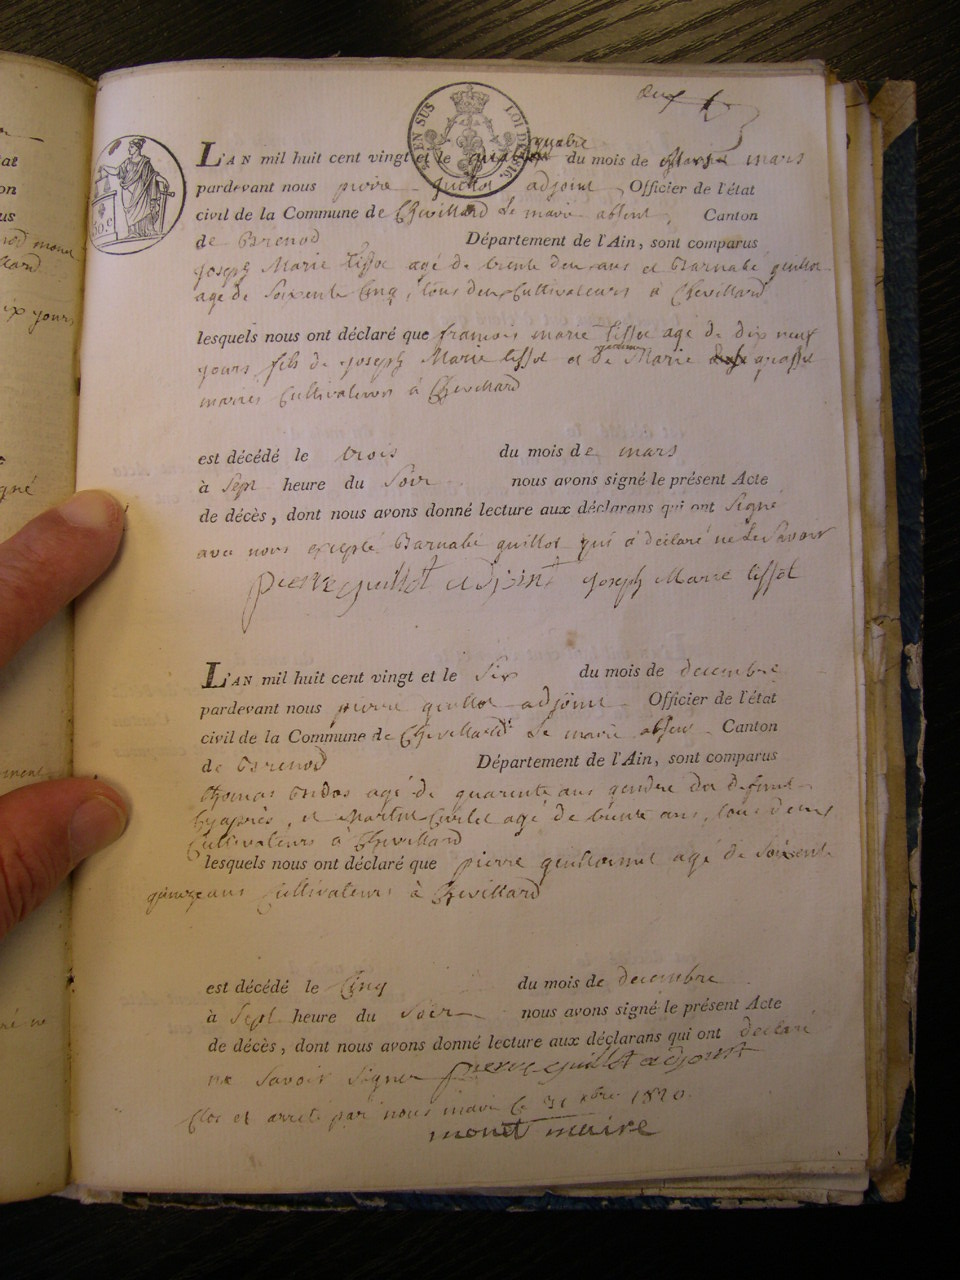 EN SUS LOI DE 1816.
50.c
L'AN mil huit cent vingt et le quatre du mois de mars
pardevant nous pierre guillot adjoint Officier de l'état
civil de la Commune de Chevillard Le maire absent Canton
de Brenod Département de l'Ain, sont comparus
Joseph Marie tissot agé de trente deux ans et Barnabé guillot
agé de soixente Cinq, tous deux Cultivateurs à Chevillard
lesquels nous ont déclaré que francois marie tissot age de dix neuf
jours fils de Joseph Marie tissot et de Marie
mariés Cultivateurs à Chevillard
est décédé le trois du mois de mars
à Sept heure du Soir nous avons signé le présent Acte
de décès, dont nous avons donné lecture aux déclarans qui ont Signé
avec nous excepté Barnabé guillot qui a déclaré ne Le Savoir
pierre guillot adjoint Joseph Marie tissot
L'AN mil huit cent vingt et le Six du mois de decembre
pardevant nous pierre guillot adjoint Officier de l'état
civil de la Commune de Chevillard Le maire absent Canton
de Brenod Département de l'Ain, sont comparus
thomas agé de quarente ans gendre du defunt
Cy après, et Martin agé de trente ans, tous deux
Cultivateurs à Chevillard
lesquels nous ont déclaré que pierre guillermet agé de soixente
quinze ans Cultivateur à Chevillard
est décédé le Cinq du mois de decembre
à Sept heure du Soir nous avons signé le présent Acte
de décès, dont nous avons donné lecture aux déclarans qui ont declaré
ne Savoir Signer pierre guillot adjoint
Clos et arreté par nous maire le 31 xbre 1820.
monet maire